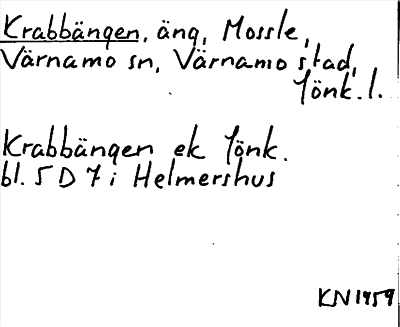 Krabbängen, äng, Mossle,
Värnamo sn, Värnamo stad,
Jönk. l.
Krabbängen ek Jönk.
bl. 5 D 7 i Helmershus
KN 1959